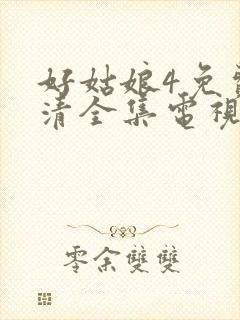 好姑娘4免費
清全集電視
零余雙雙